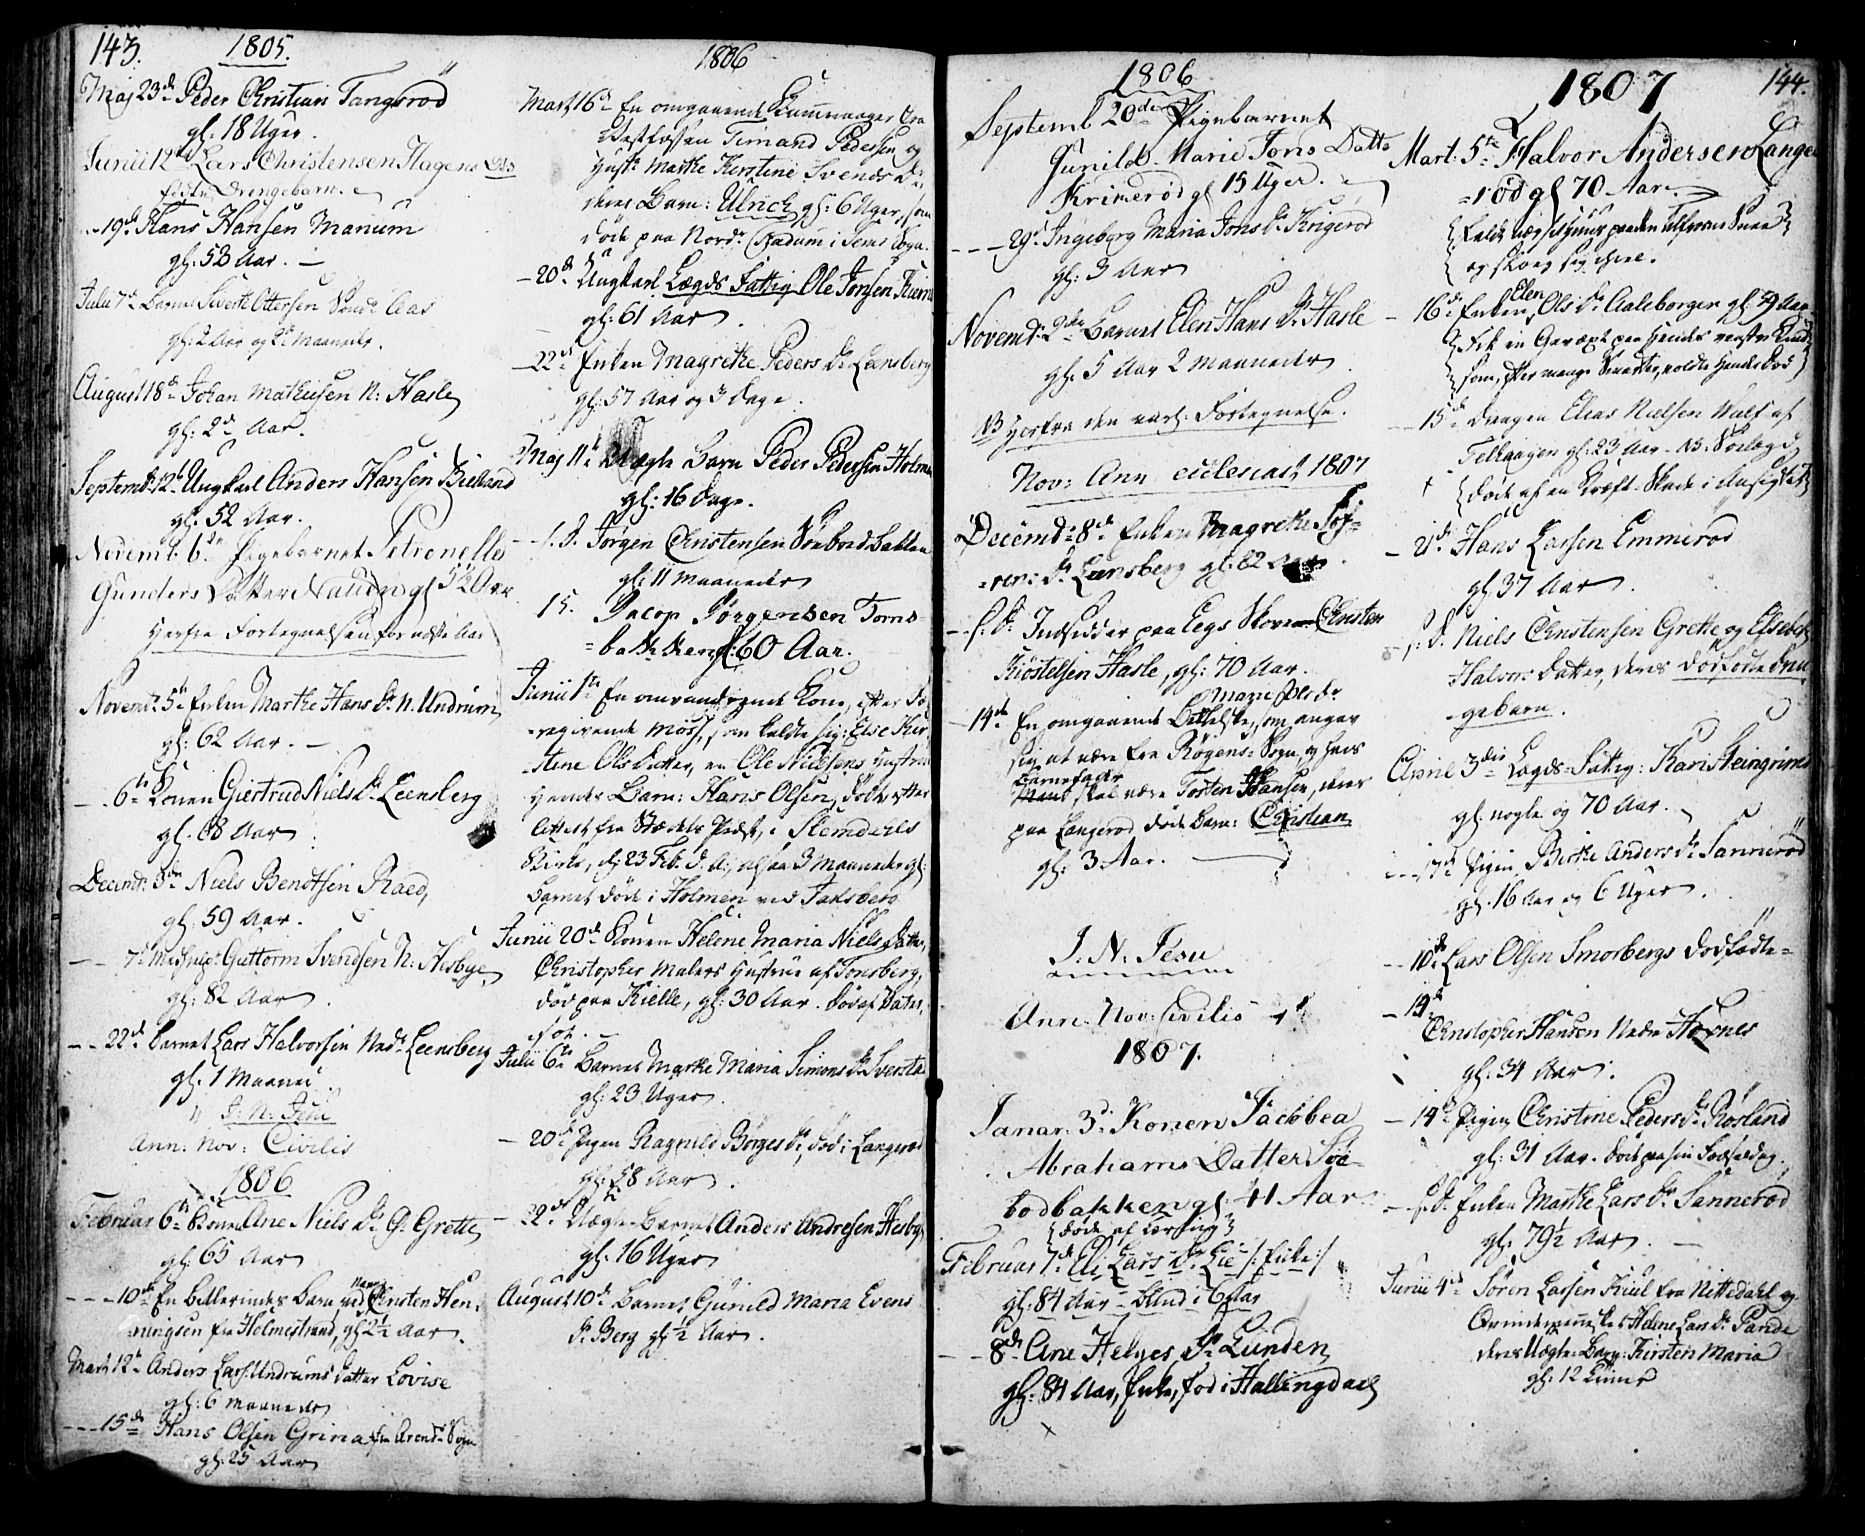 143.
1805.
Maj 23d Peder Christian Tangsrød
gl: 18 Uger.
Junii 12te Lars Christensen Hagens
Drengebarn.
19de Hans Hansen Manum
gl: 53 Aar.
Julii 7de Barnet Sivert Ottersen Aas
gl: 2 Aar og 2 Maaneder.
August 18de Johan Mathiesen N: Hasle
gl: 2 Aar.
Septemb: 12te Ungkarl Anders Hansen Bielland
gl: 52 Aar.
Novemb. 6te Pigebarnet Petronelle
Gunders Datter gl 5½ Aar
Herfra Fortegnelsen for neste Aar
Novemb: 5te Enken Marthe Hans Dr N. Undrum
gl: 62 Aar.
6te Konen Giertrud Niels Dr Leensberg
gl. 88 Aar
Decemb: 3die Niels Bendtsen Raed,
gl: 59 Aar.
7de Guttorm Svendsen N: Hesbye
gl: 82 Aar.
22de Barnet Lars Halvorsen Nedr Leensberg
gl. 1 Maaned
J: N: Jesu
Ann: Nov: Civilis
1806
Februar 6te Konen Ane Niels Dr G: Grette
gl: 65 Aar
10de En Betlerindes Barn ved Navn Christen Hen-
ningsen fra Holmestrand, gl 2½ Aar.
Mart 12te Anders Lars: Undrums Datter Lovise
gl: 6 Maaneder
15de Hans Olsen Grina fra Arend: Sogn
gl: 25 Aar
1806
Mart 16de En omgaaende Kummager fra
Vestfossen Timand Pedersen og
Hust: Marthe Kirstine Svends Dr
deres Barn: Ulrich gl: 6 Uger, som
døde paa Nordr Fadum i Sems Sogn.
20de Ungkarl Lægds Fattig Ole Jonsen
gl: 61 Aar.
22de Enken Magrethe Peders Dr Leensberg
gl: 57 Aar og 3 Dage.
Maj 11te Uægte Barn Peder Pedersen Holmen
gl: 16 Dage.
s. D. Jørgen Christensen Søebodbakken
gl: 11 Maaneder
15. Jacop Jørgensen Toms-
bakken gl: 60 Aar.
Junii 1ste En omvandrende Kone, efter Fo-
regivende Moss, som kaldte sig: Else Kir-
stene Ols Datter, en Ole Nielsens Hustru
Hendes Barn: Hans Olsen, døbt efter
Attest fra Stædets Præst, i Slemdahls
Kirke, d: 23 Feb. d. A:, altsaa 3 Maaneder gl:
Barnet døde i Holmen ved Jarlsberg
Junii 20de Konen Helene Maria Niels Datter,
Christopher Malers Hustrue af Tonsberg,
død paa Kielle, gl: 30 Aar. Død af Vater-
sot.
Julii 6te Barnet Marthe Maria Simons Dr
gl: 23 Uger
20de Pigen Ragnild Børges Dr, død i Langerød
gl: 58 Aar.
22de Uægte Barnet Anders Andresen Hesby
gl: 16 Uger
August 10de Barnet Gunild Maria Evens
Dr Berg gl ½ Aar.
1806
Septemb 20de Pigebarnet
Gunild Marie Jons Datter
Krimerød gl 15 Uger.
29de Ingeborg Maria Jons Dr
gl: 3 Aar
Novemb: 2den Barnet Elen Hans Dr Hasle
gl: 5 Aar 2 Maaneder
NB Herfra den aarl: Fortegnelse.
Nov: Ann ecclesiast 1807
Decemb: 8de Enken Magrethe Sø-
rens Dr Leensberg gl: 82 Aar.
s. D. Indsidder paa Eegs Skoven Christen
Kiøstelsen Hasle, gl: 70 Aar.
14de En omgaaende Betlerske, Marie Peders Dr som angav
sig at være fra Røgens Sogn, og hvis
Barnefader skal være Torsten Hansen, deres
paa Langerød døde Barn: Christian
gl: 3 Aar.
J. N. Jesu
Ann: Nov: Civilis
1807.
Januar. 3die Konen Jackbea
Abrahams Datter Søe-
bodbakken gl: 41 Aar.
{døde af Tæring}
Februar 7de Eli Lars Dr Lie /: Enke :/
gl: 84 Aar Blind i 6 Aar
8de Ane Helges Dr Lunden
gl: 84 Aar, Enke, fød i Hallingdal
1807
144.
Mart: 5te Halvor Andersen Lange-
rød gl 70 Aar.
og slog sig ilde.
16de Enken Elen Ols Dr Aaleborgen gl: 59 Aar
Fik en Gevæxt paa Hendes venstre Kind
som, efter mange Smerter, voldte Hendes Død
15de Drengen Elias Nielsen Wulf af
gl: 23 Aar. NB.
døde af en Kræft-Skade i Ansigtet
21de Hans Larsen Emmerød
gl 37 Aar.
s. D. Niels Christensen Grette og Elsebeth
Halvors Datter, deres dødfødte Dren-
gebarn.
April 3die Lægds-Fattig: Kari Steingrims
gl: nogle og 70 Aar.
7de Pigen Birthe Anders Dr Sannerød
gl: 16 Aar og 6 Uger.
10de Lars Olsen Smorbergs dødfødte
14de
Christopher Hansen Nedre Hornes
gl: 34 Aar.
14de Pigen Christine Peders Dr Rørland
gl: 31 Aar. døde paa sin Fødselsdag.
s. D. Enken Marthe Lars Dr Sannerød
gl: 79½ Aar.
Junii 4de Søren Larsen fra Nittedahl og
Qvindemennesket Helene Lars Dr Pande
deres Uægte Barn: Kirsten Maria
gl: 12 Timer